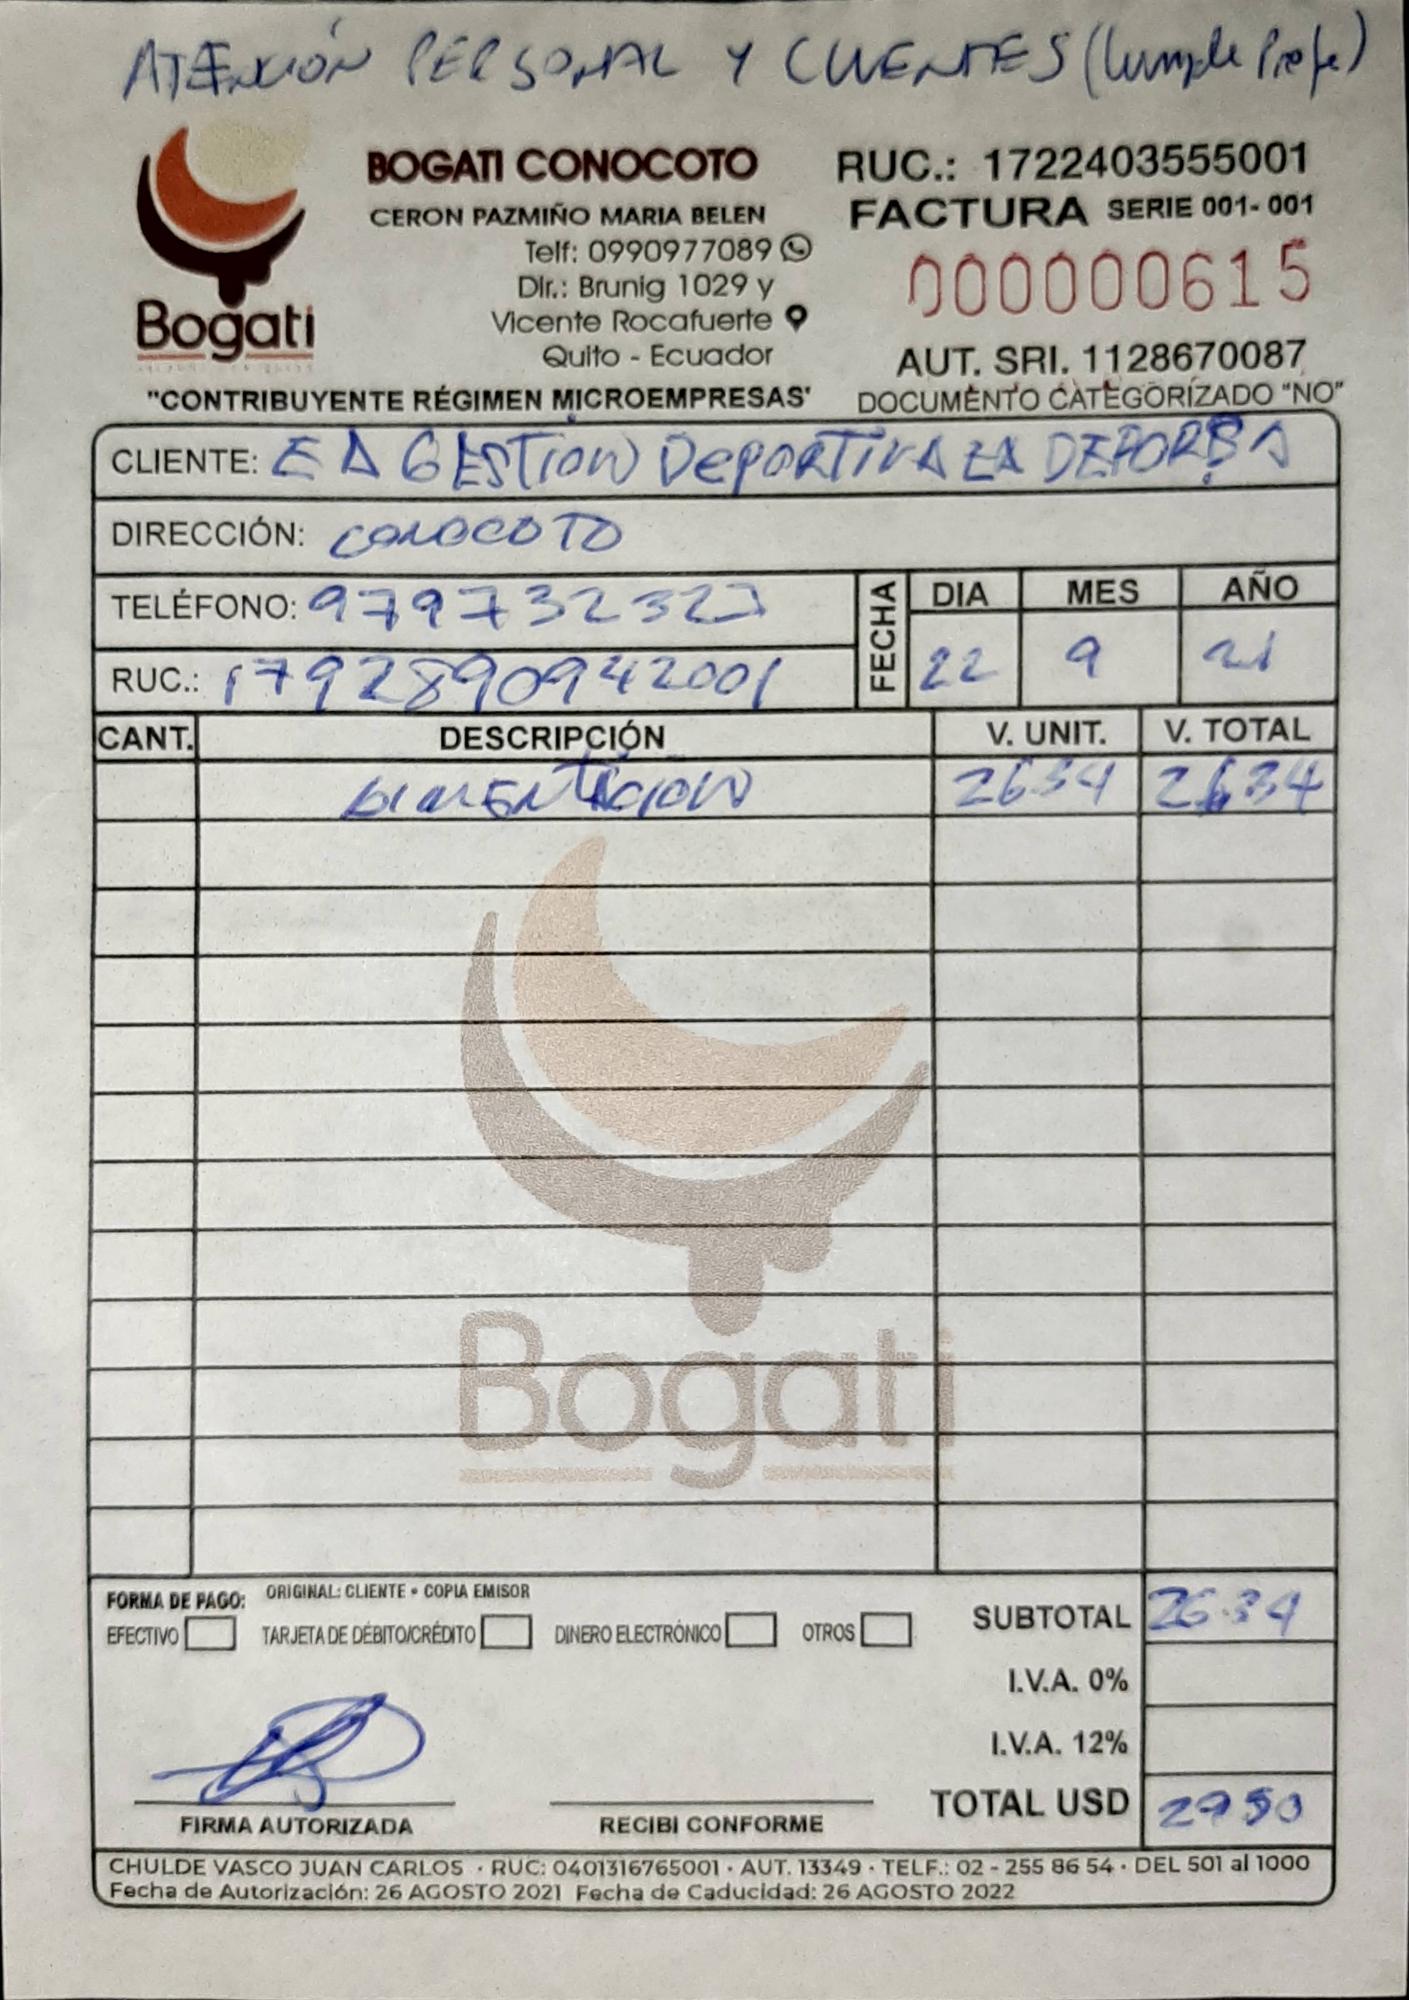 ATENCIÓN PERSONAL Y CLIENTES (Cumple Profe)
Bogati
BOGATI CONOCOTO
CERON PAZMIÑO MARIA BELEN
Telf: 0990977089
Dir.: Brunig 1029 y
Vicente Rocafuerte
Quito - Ecuador
"CONTRIBUYENTE RÉGIMEN MICROEMPRESAS'
RUC.: 1722403555001
FACTURA SERIE 001-001
000000615
AUT. SRI. 1128670087
DOCUMENTO CATEGORIZADO "NO"
CLIENTE: E A GESTION DEPORTIVA EA DEPOR S A
DIRECCIÓN: CONOCOTO
TELÉFONO: 979732323
RUC.: 1792890942001
FECHA
DIA MES AÑO
22 9 21
CANT. DESCRIPCIÓN V. UNIT. V. TOTAL
ALIMENTACION 26.34 26.34
Bogati
FORMA DE PAGO: ORIGINAL: CLIENTE • COPIA EMISOR
EFECTIVO TARJETA DE DÉBITO/CRÉDITO DINERO ELECTRÓNICO OTROS
SUBTOTAL 26.34
I.V.A. 0%
I.V.A. 12%
TOTAL USD 29.50
FIRMA AUTORIZADA RECIBI CONFORME
CHULDE VASCO JUAN CARLOS · RUC: 0401316765001 · AUT. 13349 · TELF.: 02 - 255 86 54 · DEL 501 al 1000
Fecha de Autorización: 26 AGOSTO 2021 Fecha de Caducidad: 26 AGOSTO 2022